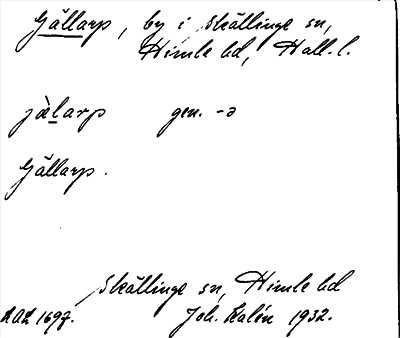 Gällarp, by i Skällinge sn,
Himle hd, Hall. l.
jàlarp gen. -ə
Gällarp.
Skällinge sn, Himle hd
LAL 1697. Joh. Kalén 1932.